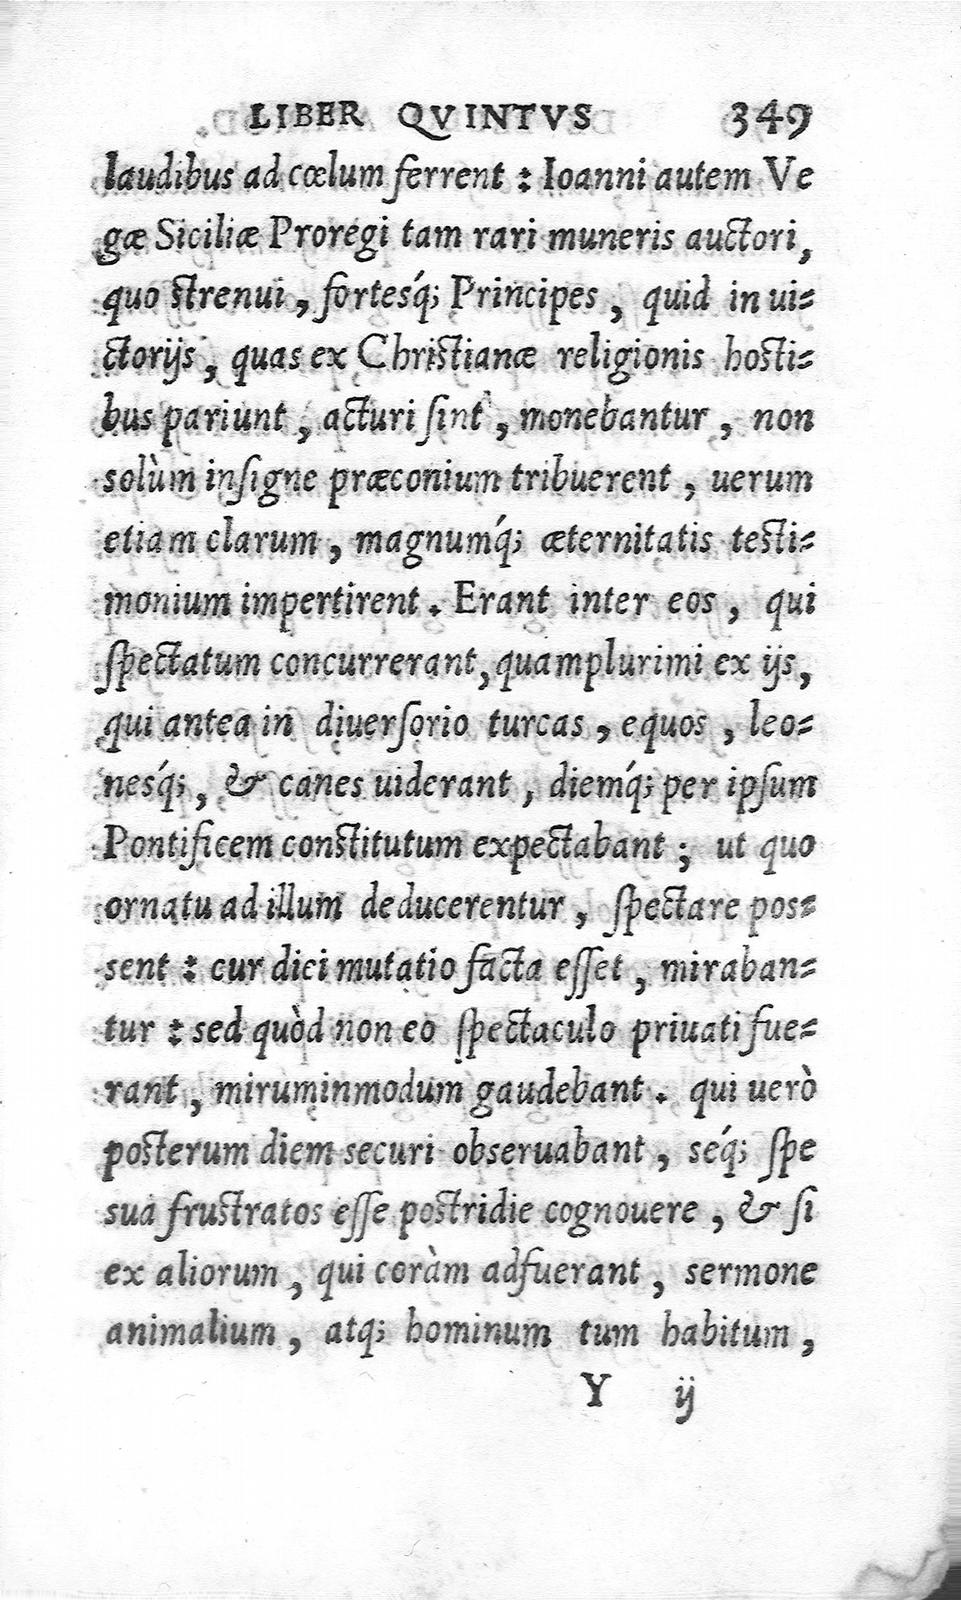 LIBER QVINTVS 349
laudibus ad cœlum ferrent : Ioanni autem Ve
gæ Siciliæ Proregi tam rari muneris auctori,
quo strenui, fortesq́; Principes, quid in ui=
ctorijs, quas ex Christianæ religionis hosti=
bus pariunt, acturi ſint, monebantur, non
solùm inſigne præconium tribuerent, uerum
etiam clarum, magnumq́; æternitatis testi=
monium impertirent. Erant inter eos, qui
ſpectatum concurrerant, quamplurimi ex ijs,
qui antea in diuerſorio turcas, equos, leo=
nesq́;, & canes uiderant, diemq́; per ipſum
Pontificem constitutum expectabant; ut quo
ornatu ad illum deducerentur, ſpectare pos=
sent : cur dici mutatio facta eſſet, miraban=
tur : sed quòd non eo ſpectaculo priuati fue=
rant, miruminmodum gaudebant. qui uerò
posterum diem securi obseruabant, séq́; ſpe
sua frustratos eſſe postridie cognouere, & ſi
ex aliorum, qui coràm adfuerant, sermone
animalium, atq; hominum tum habitum,
Y ij